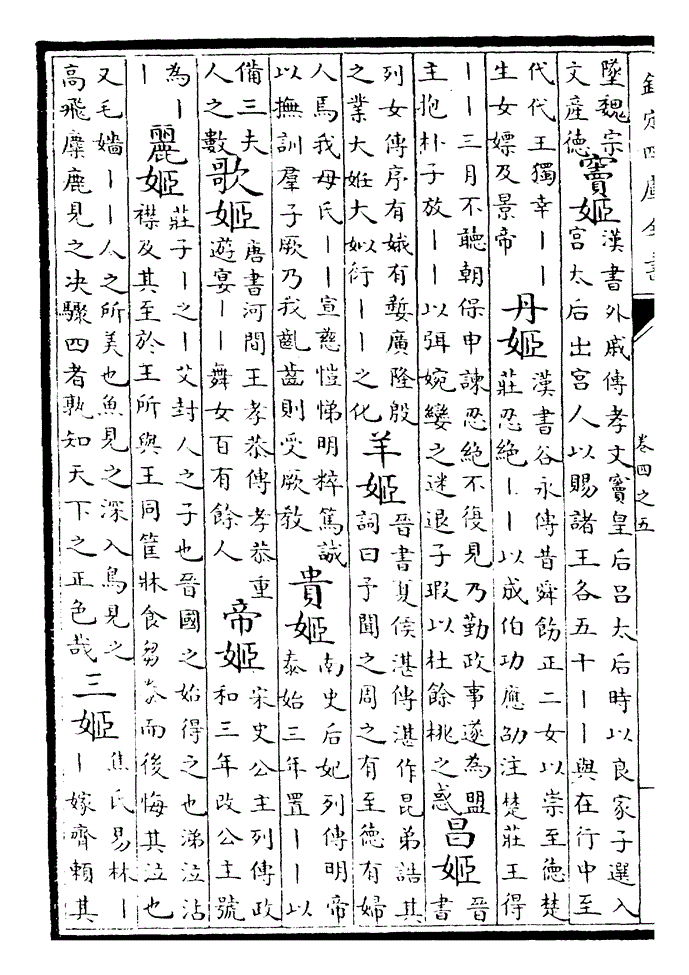 欽定四庫全書
卷四之五
墜魏宗
文產德
竇姬
漢書外戚傳孝文竇皇后呂太后時以良家子選入
宮太后出宮人以賜諸王各五十丨丨與在行中至
代代王獨幸丨丨
生女嫖及景帝
丹姬
漢書谷永傳昔舜飭正二女以崇至德楚
莊忍絶丨丨以成伯功應劭注楚莊王得
丨丨三月不聽朝保申諫忍絶不復見乃勤政事遂為盟
主抱朴子放丨丨以弭婉孌之迷退子瑕以杜餘桃之惑
昌姬
晉
書
列女傳序有娥有嫯廣隆殷
之業大姙大姒衍丨丨之化
羊姬
晉書夏侯湛傳湛作昆弟誥其
詞曰予聞之周之有至德有婦
人焉我母氏丨丨宣慈愷悌明粹篤誠
以撫訓羣子厥乃我齔齒則受厥教
貴姬
南史后妃列傳明帝
泰始三年置丨丨以
備三夫
人之數
歌姬
唐書河間王孝恭傳孝恭重
遊宴丨丨舞女百有餘人
帝姬
宋史公主列傳政
和三年改公主號
為丨
丨
麗姬
莊子丨之丨艾封人之子也晉國之始得之也涕泣沾
襟及其至於王所與王同筐牀食芻豢而後悔其泣也
又毛嬙丨丨人之所美也魚見之深入鳥見之
高飛麋鹿見之決驟四者孰知天下之正色哉
三姬
焦氏易林丨
丨嫁齊賴其